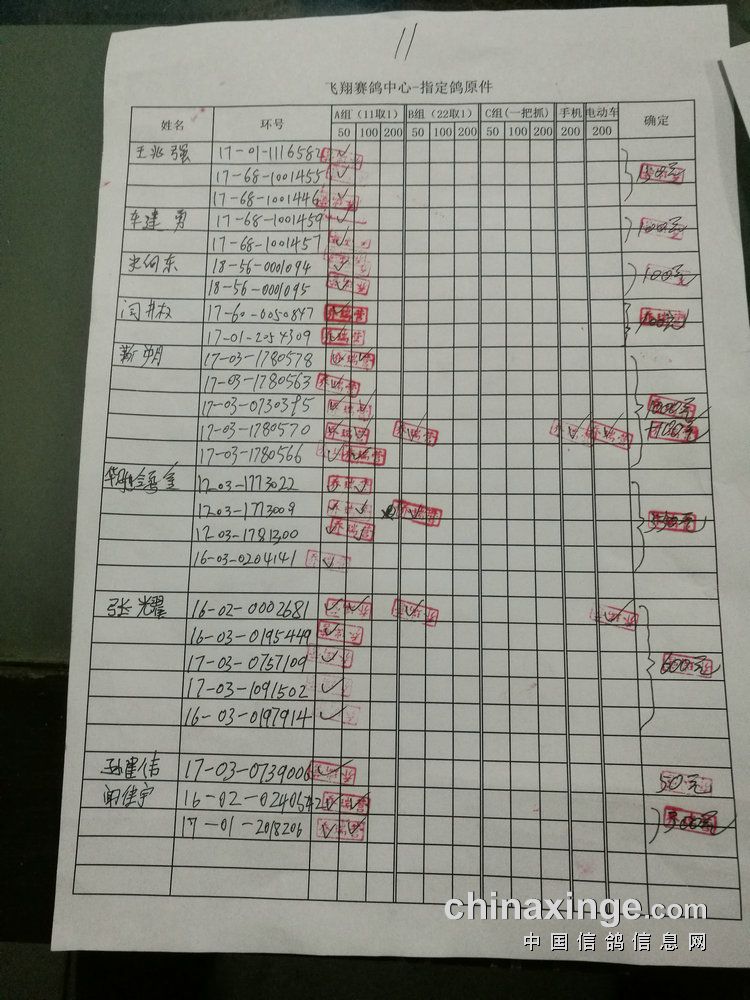 11
飞翔赛鸽中心-指定鸽原件
姓名 环号 A组（11取1） B组（22取1） C组(一把抓) 手机 电动车 确定
50 100 200 50 100 200 50 100 200 200 200
王兆强 17-01-1116582 ✓
17-68-1001455 ✓
17-68-1001446 ✓
车建勇 17-68-1001459 ✓ 100元
17-68-1001457 ✓
史向东 18-56-0001094 ✓ 100元
18-56-0001095 ✓
闫井权 17-60-0050847
17-01-2054309
靳朔 17-03-1780578
17-03-1780563
17-03-0730395
17-03-1780570
17-03-1780566
1203-1773022
1203-1773009
1203-1781300
16-03-0204141
张耀 16-02-0002681 600元
16-03-0195449
17-03-0757109
17-03-1091502
16-03-0197914
17-03-0739006 50元
闻佳宇 16-02-0240542
17-01-2018206
chinaxinge.com
中国信鸽信息网